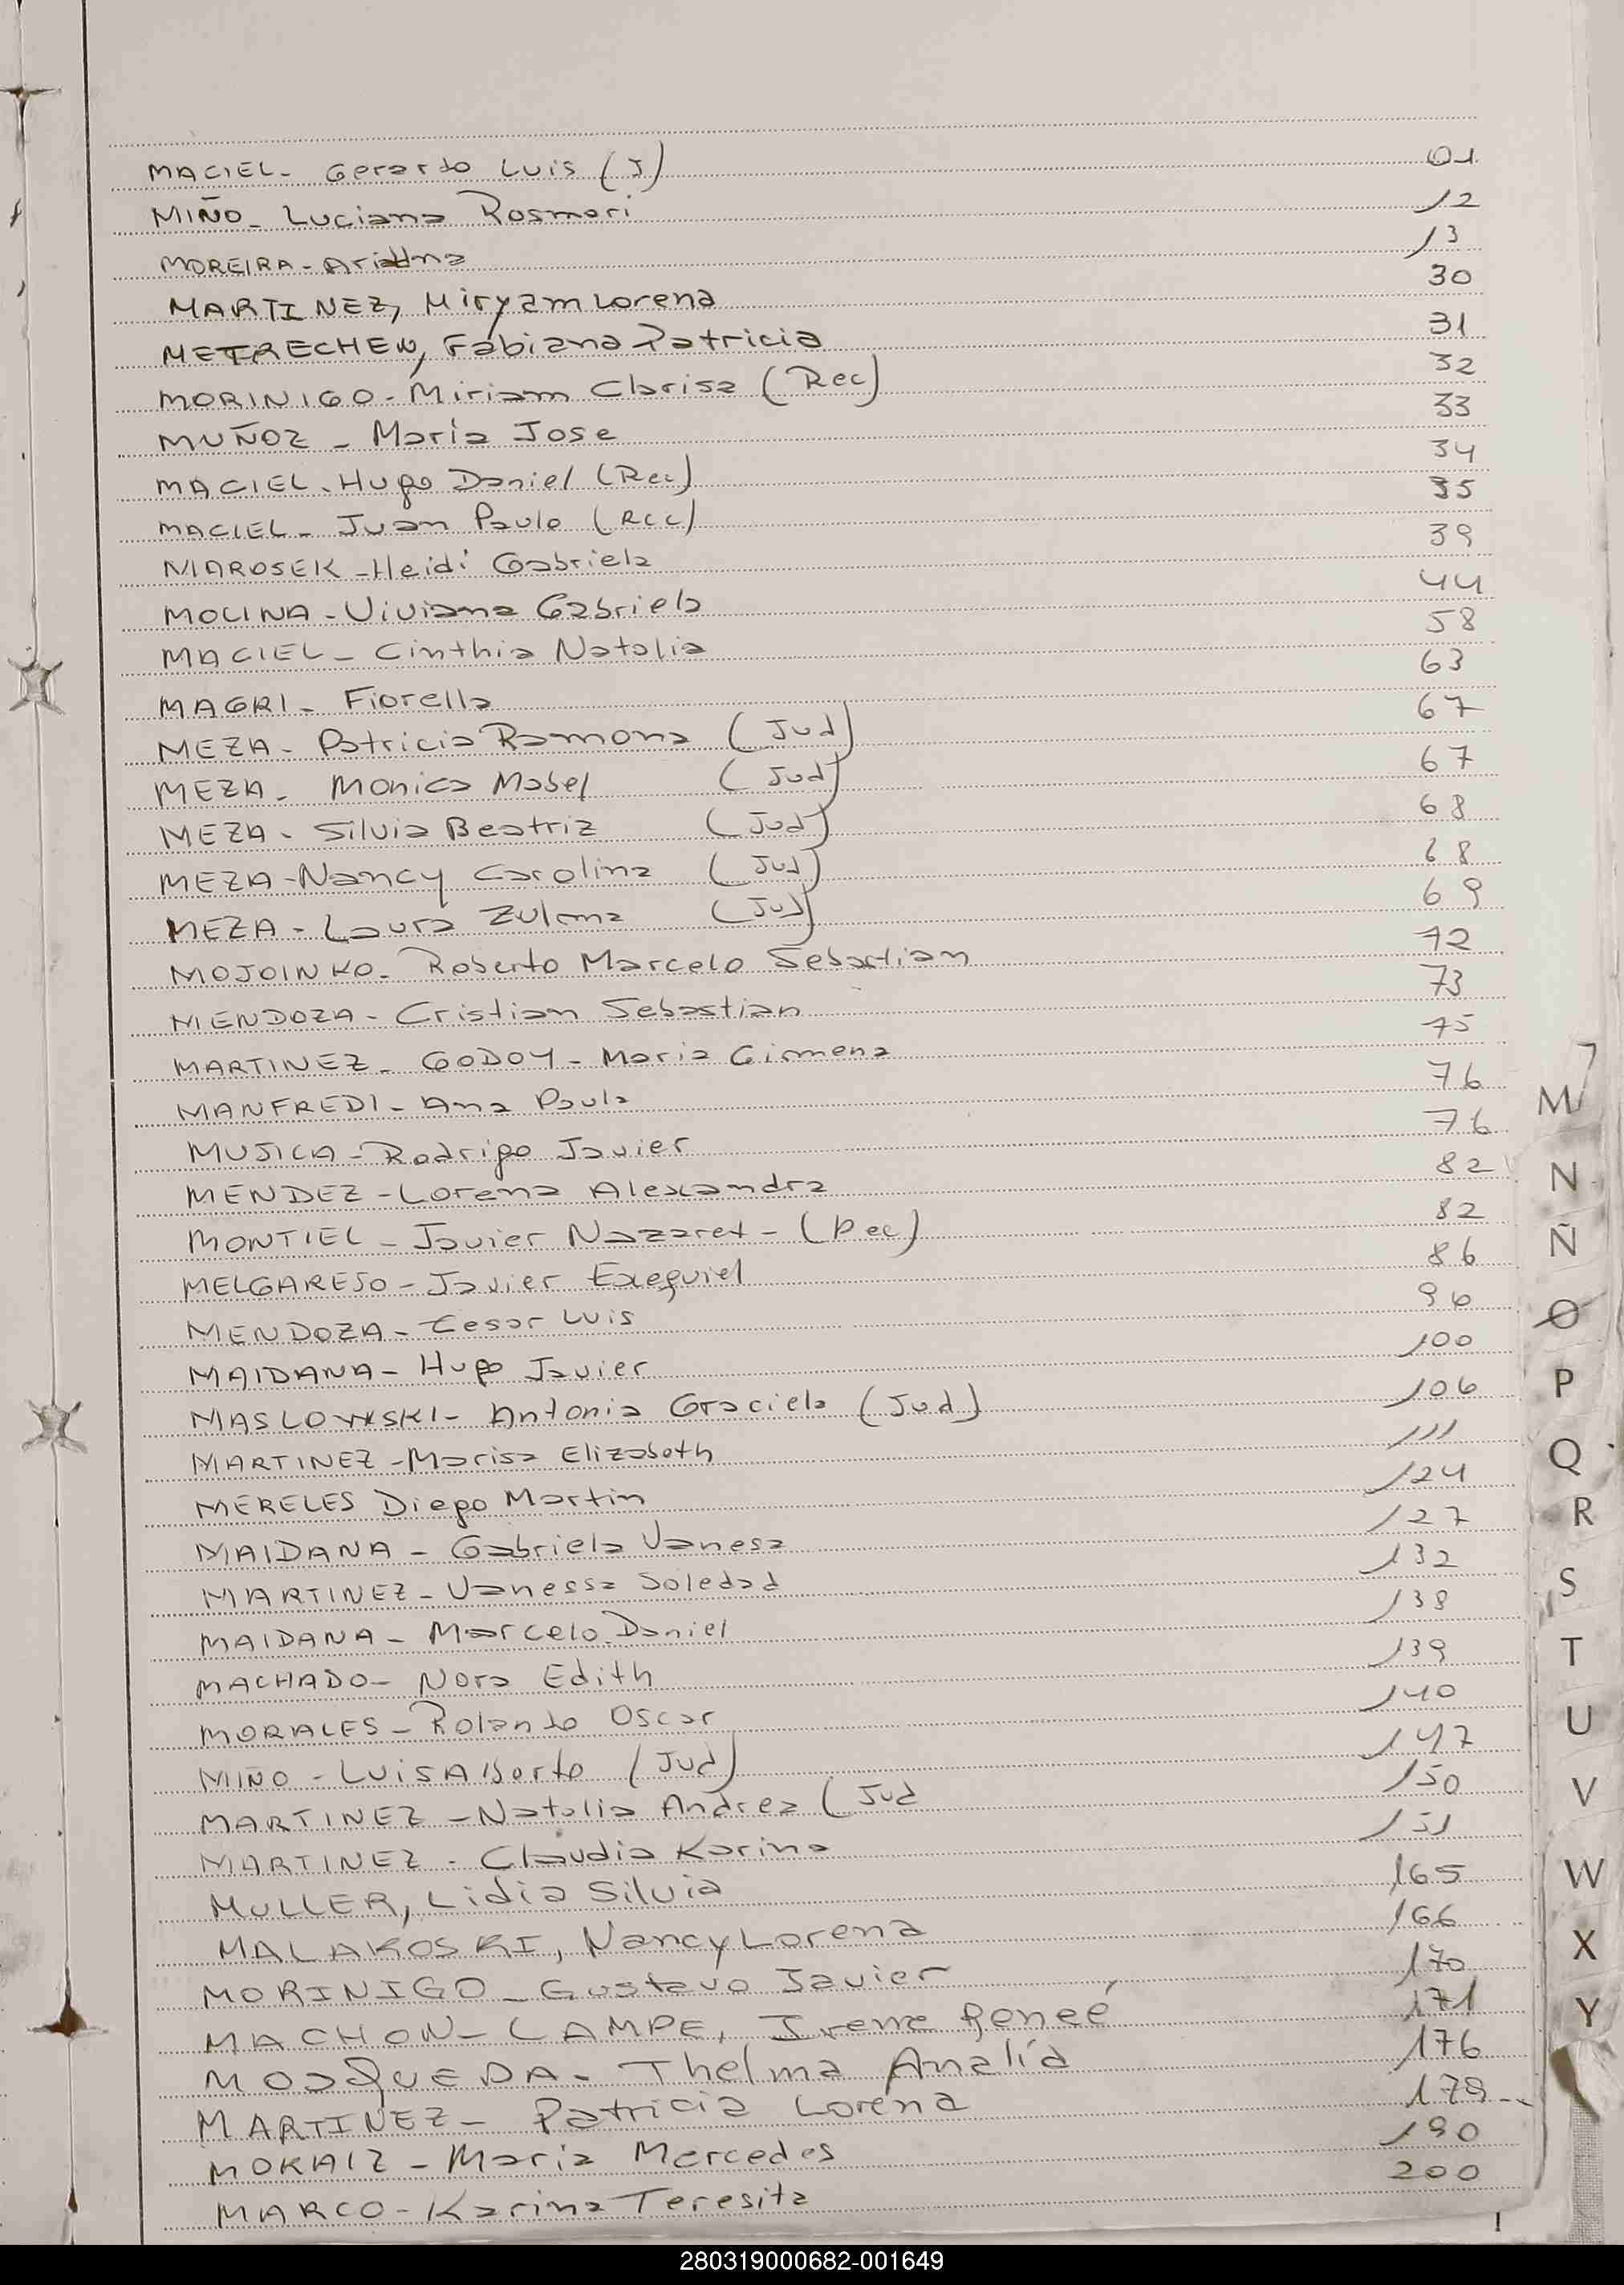 MACIEL- Gerardo Luis (J) 01
MIÑO- Luciana Rosmari 12
MOREIRA- Ariadna 13
MARTINEZ, Miryam Lorena 30
METRECHEN, Fabiana Patricia 31
MORINIGO- Miriam Clarisa (Rec) 32
MUÑOZ - Maria Jose 33
MACIEL- Hugo Daniel (Rec) 34
MACIEL- Juan Paulo (Rec) 35
MAROSEK -Heidi Gabriela 39
MOLINA- Viviana Gabriela 44
MACIEL- Cinthia Natalia 58
MAGRI- Fiorella 63
MEZA- Patricia Ramona (Jud) 67
MEZA- Monica Mabel (Jud) 67
MEZA- Silvia Beatriz (Jud) 68
MEZA-Nancy Carolina (Jud) 68
MEZA- Laura Zulma (Jud) 69
MOJOINKO- Roberto Marcelo Sebastian 72
MENDOZA- Cristian Sebastian 73
MARTINEZ- GODOY- Maria Gimena 75
MANFREDI- Ana Paula 76
MUJICA- Rodrigo Javier 76
MENDEZ-Lorena Alexandra 82
MONTIEL- Javier Nazaret- (Rec) 82
MELGAREJO- Javier Exequiel 86
MENDOZA- Cesar Luis 96
MAIDANA- Hugo Javier 100
MASLOWSKI- Antonia Graciela (Jud) 106
MARTINEZ-Marisa Elizabeth 111
MERELES Diego Martin 124
MAIDANA - Gabriela Vanesa 127
MARTINEZ- Vanessa Soledad 132
MAIDANA- Marcelo Daniel 138
MACHADO- Nora Edith 139
MORALES- Rolando Oscar 140
MIÑO - Luis Alberto (Jud) 147
MARTINEZ -Natalia Andrea (Jud 150
MARTINEZ - Claudia Karina 151
MULLER, Lidia Silvia 165
MALAKOSKI, Nancy Lorena 166
MORINIGO- Gustavo Javier 170
MACHON- LAMPE, Irene Reneé 171
MOSQUEDA- Thelma Analía 176
MARTINEZ- Patricia Lorena 179
Maria Mercedes 190
MARCO-Karina Teresita 200
M
N
Ñ
O
P
Q
R
S
T
U
V
W
X
Y
280319000682-001649